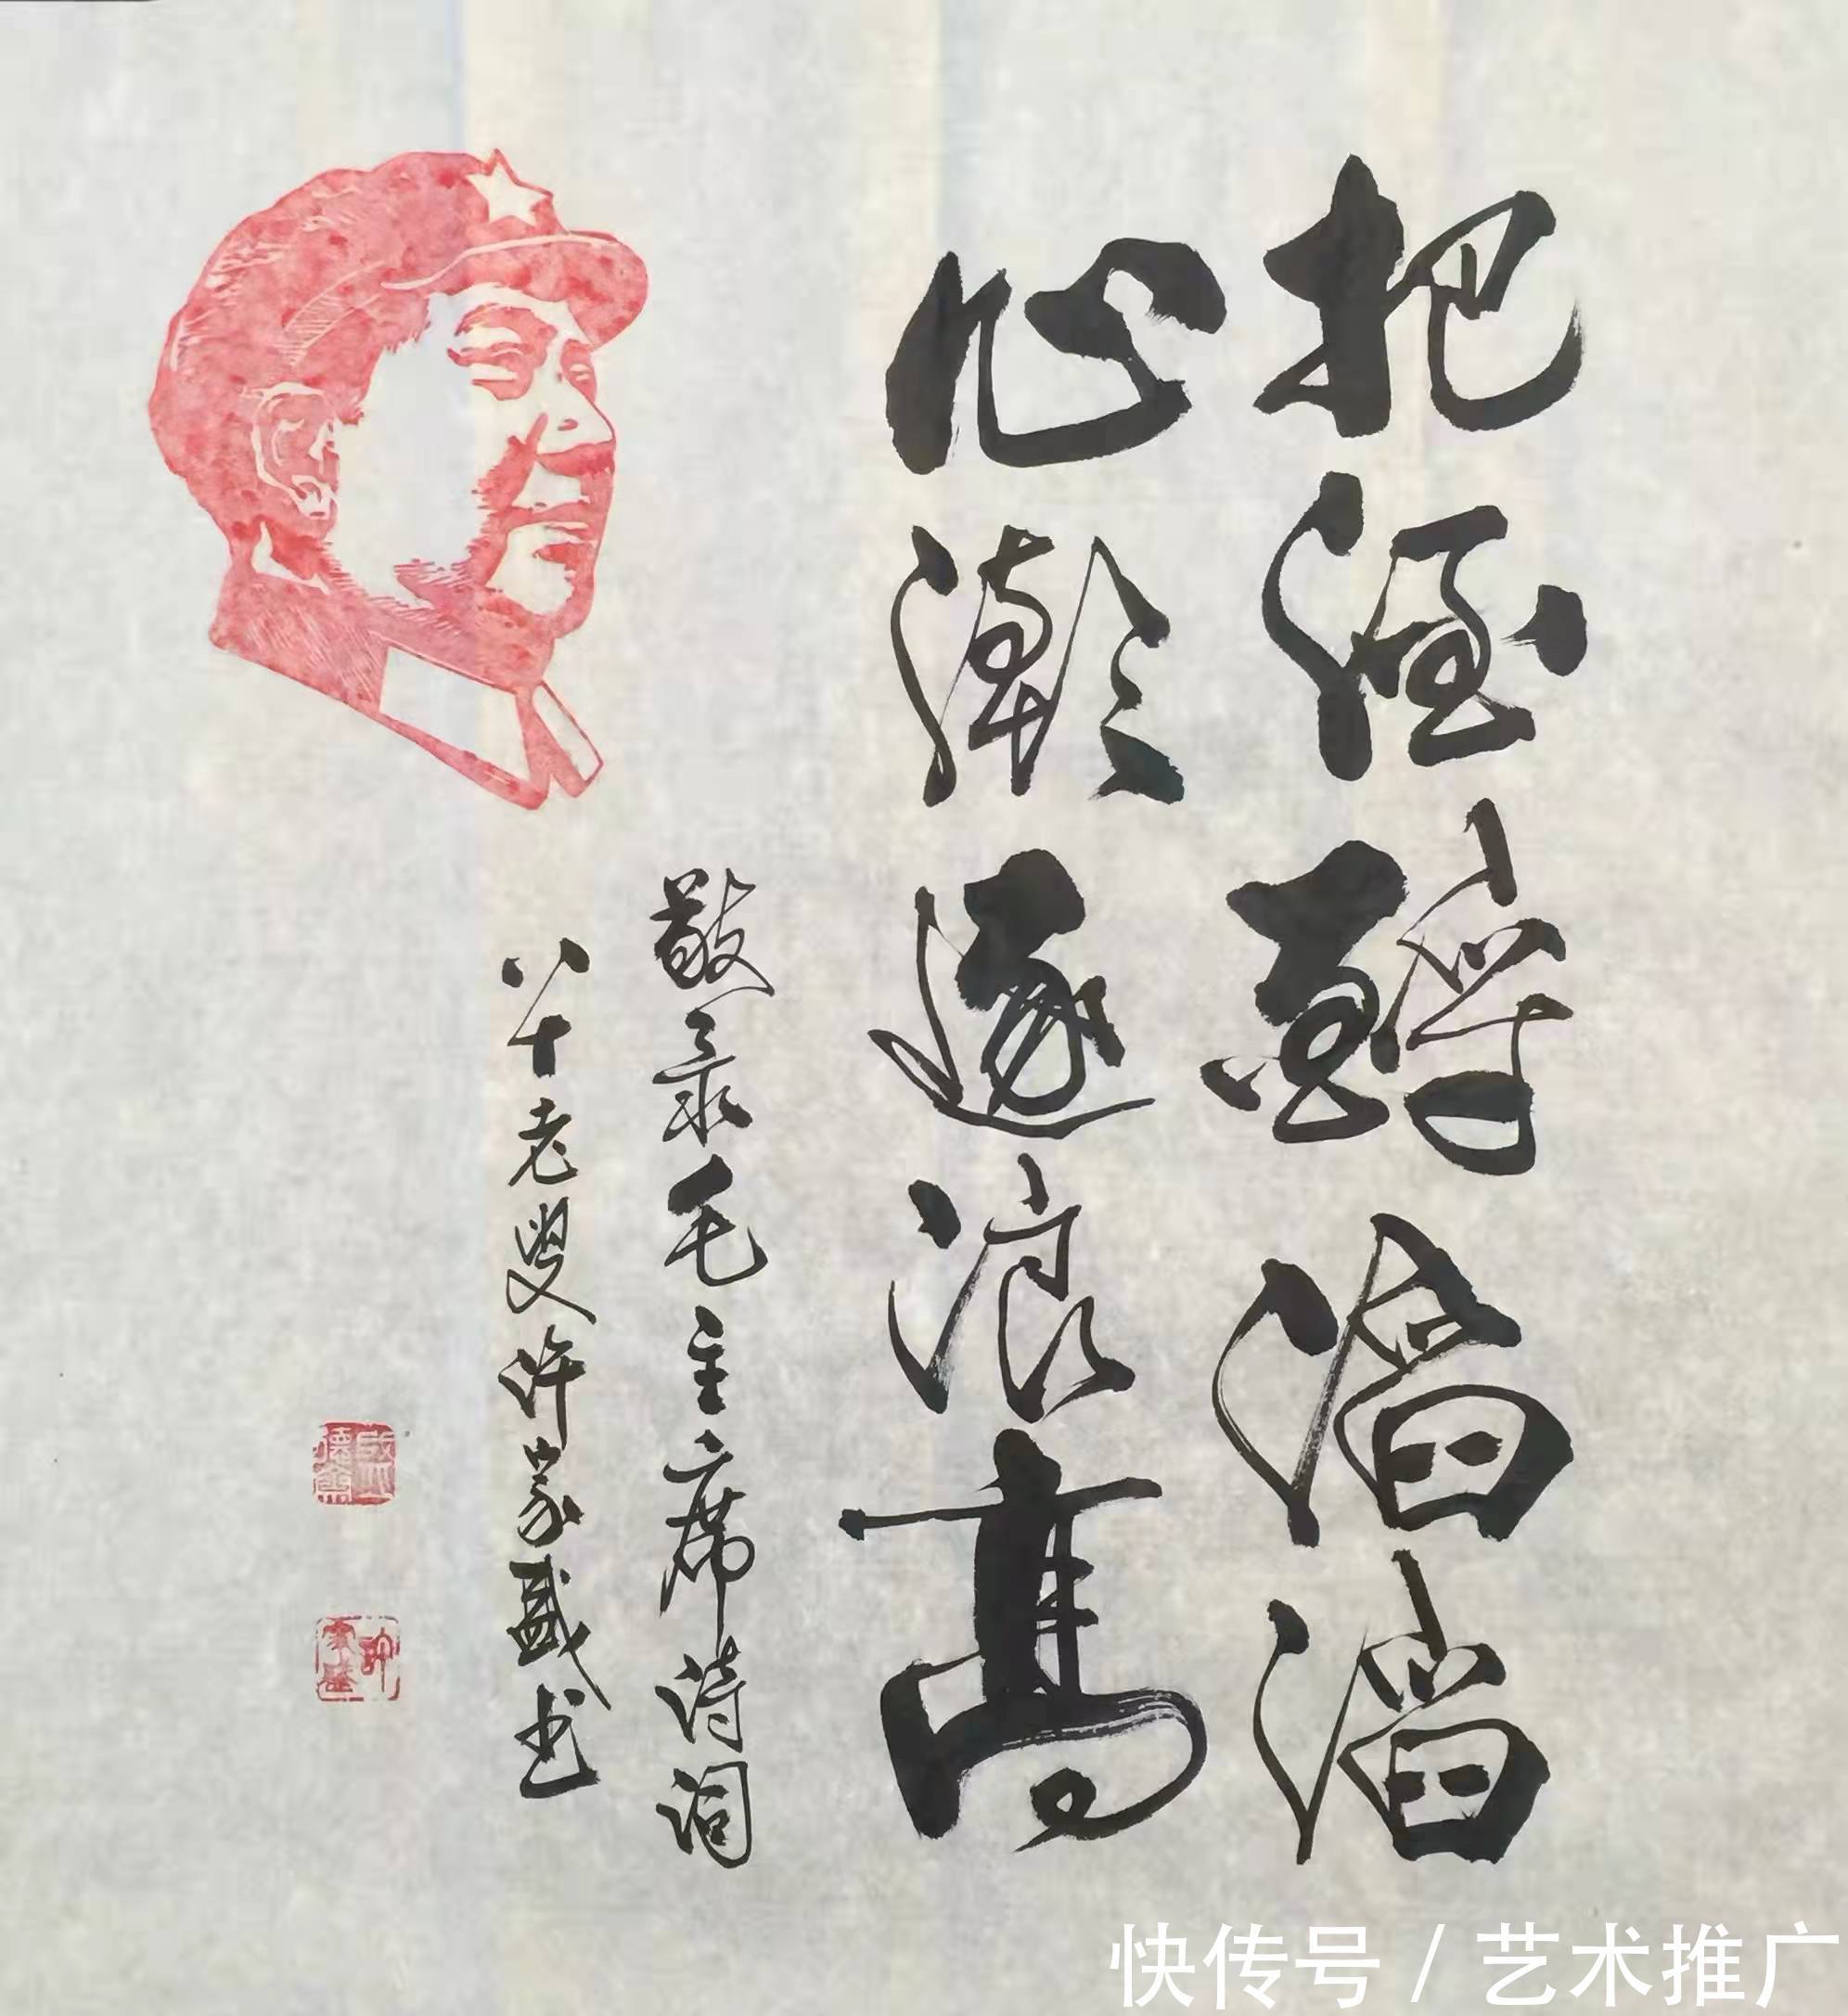 把酒酹滔滔
心潮逐浪高
敬录毛主席诗词
八十老叟许家盛书
许家盛
快传号 / 艺术推广